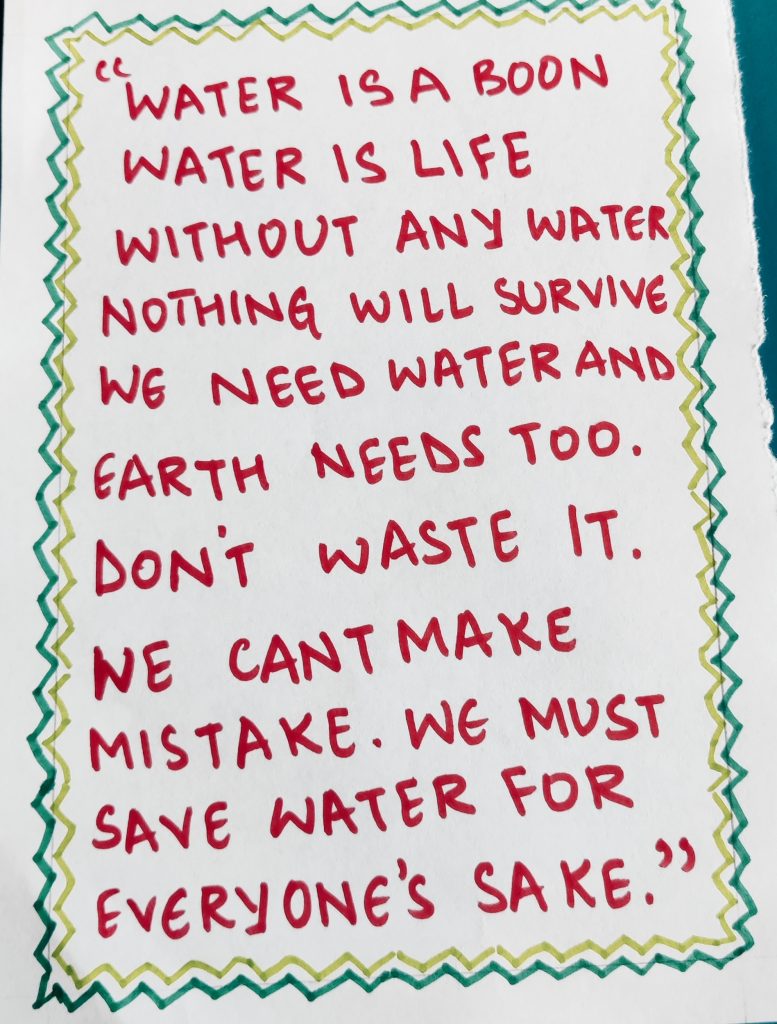 “WATER IS A BOON
WATER IS LIFE
WITHOUT ANY WATER
NOTHING WILL SURVIVE
WE NEED WATER AND
EARTH NEEDS TOO.
DON'T WASTE IT.
WE CANT MAKE
MISTAKE. WE MUST
SAVE WATER FOR
EVERYONE'S SAKE.”